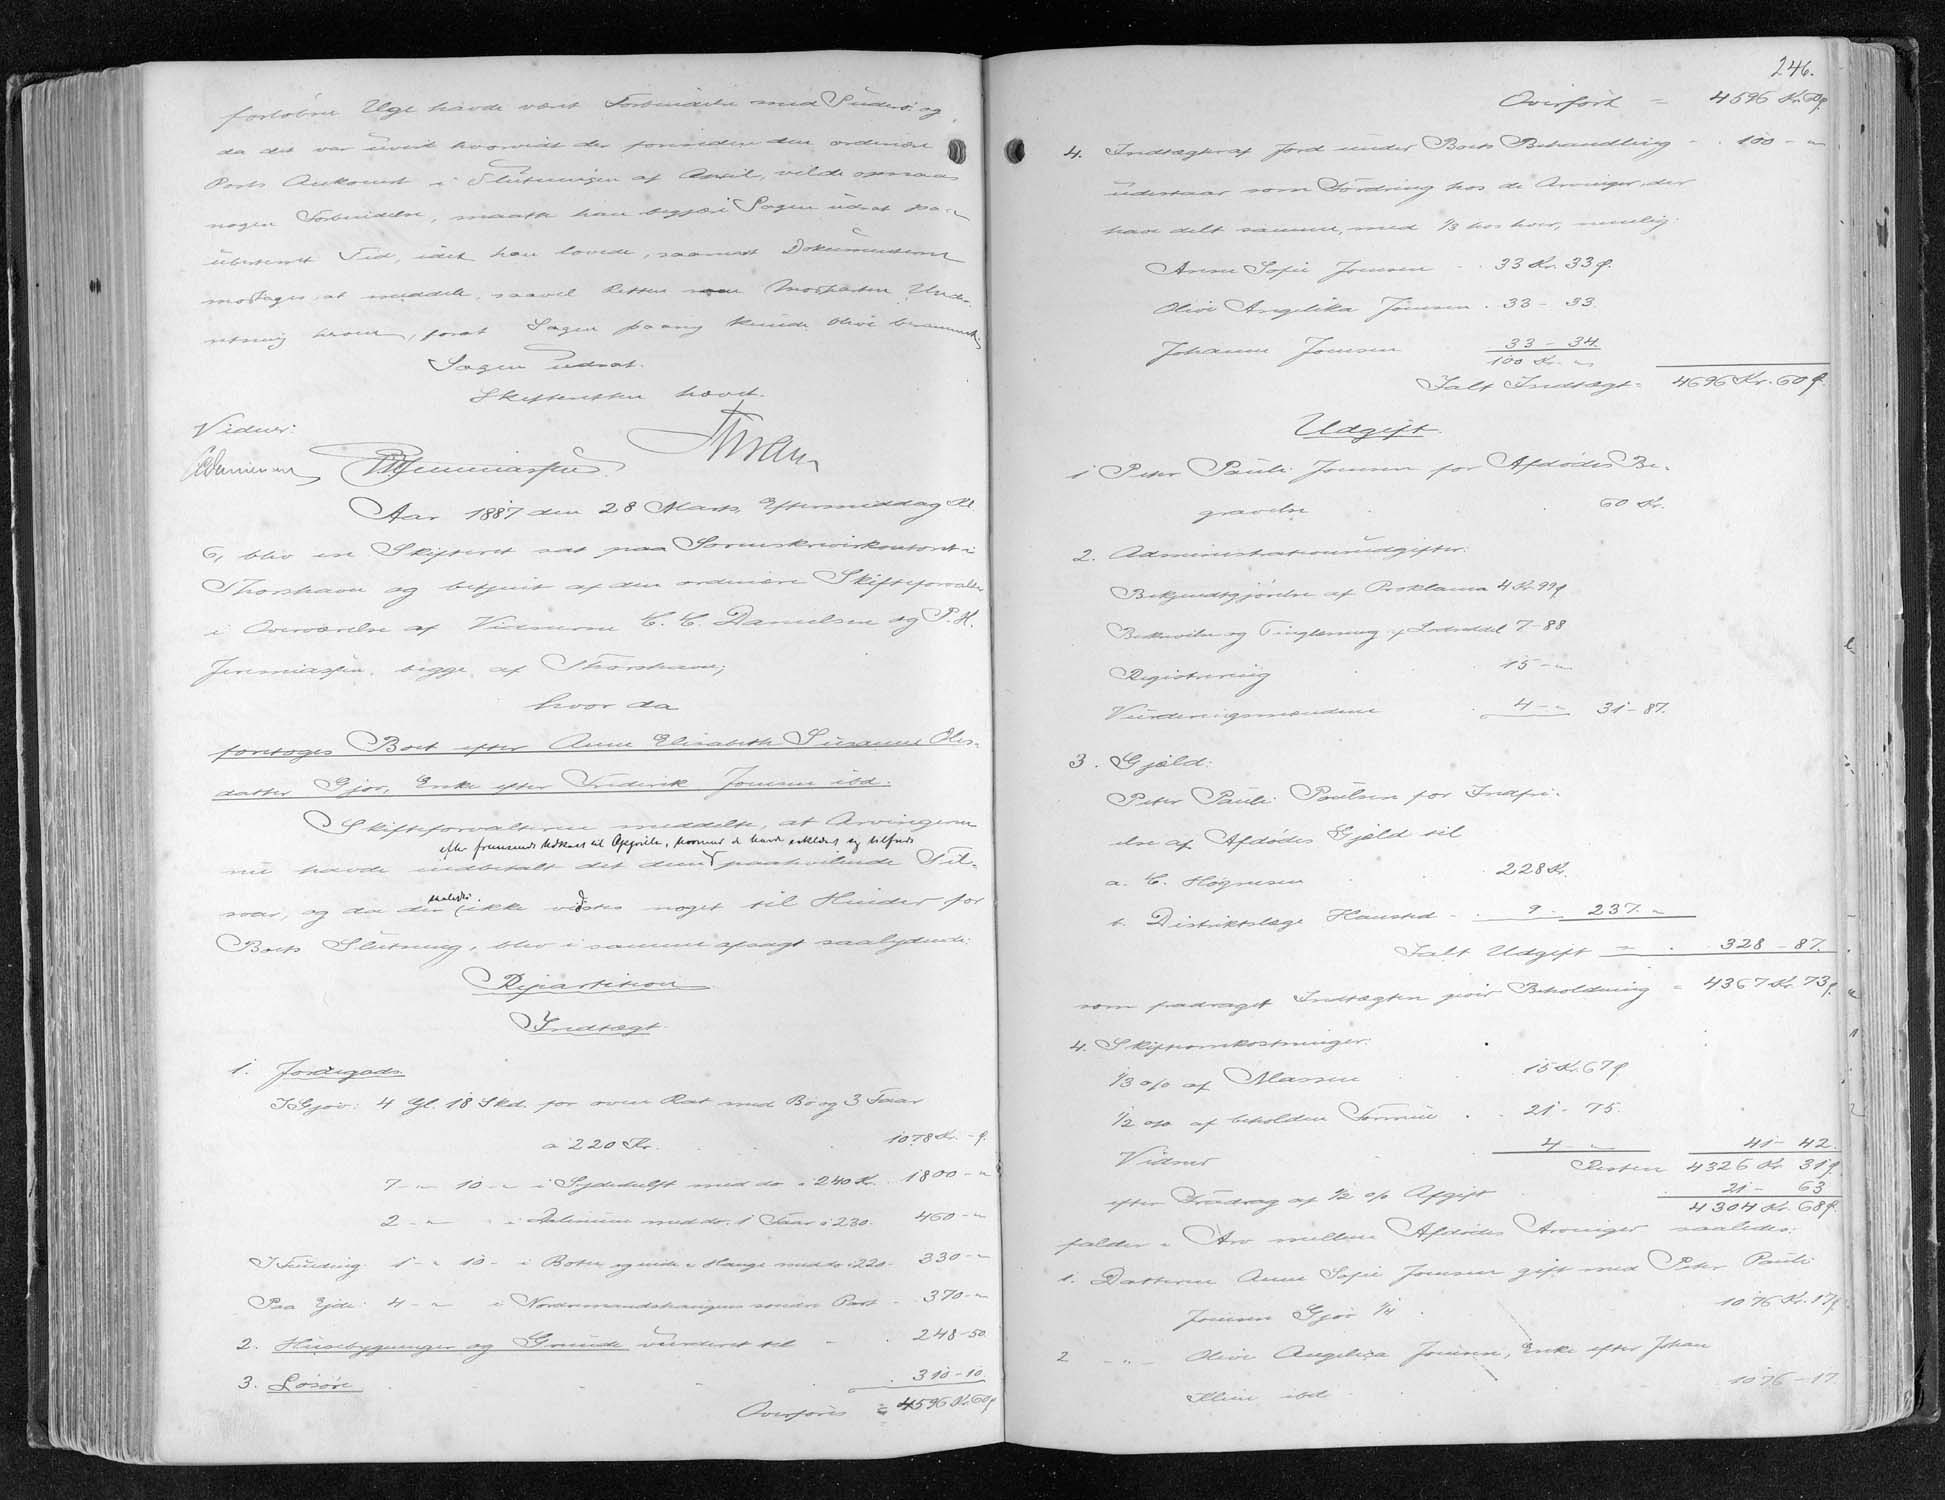 forløbne Uge havde været Forbindelse med Suderø og
da det var uvist hvorvidt der forinden den ordinære
Posts Ankomst i Slutningen af April, vilde opnaaes
nogen Forbindelse, maatte han begjære Sagen udsat paa
ubestemt Tid, idet han lovede, saasnart Dokumenterne
modtages at meddele saavel Retten som Modparten Under-
retning herom, forat Sagen paany kunde blive berammet.
Sagen udsat.
Skifteretten hævet.
Vidner:
CCDanielsen PHJeremiassen
Aar 1887 den 28 Marts, Eftermiddag Kl.
6, blev en Skifteret sat paa Sorenskriverkontoret i
Thorshavn og betjent af den ordinære Skifteforvalter
i Overværelse af Vidnerne C. C. Danielsen og P. H.
Jeremiassen, begge af Thorshavn;
hvor da
foretoges Boet efter Anne Elisabeth Susanne Oles-
datter Gjov, Enke efter Frederik Joensen ibd.
Skifteforvalteren meddelte, at Arvingerne
efter fremsendt Udkast til Opgjørelse, hvormed de havde erklæret sig tilfreds
nu havde indbetalt det dem paahvilende Til-
svar, og da der saaledes ikke vidstes noget til Hinder for
Boets Slutning, blev i samme afsagt saalydende:
Repartition
Indtægt.
1. Jordegods
I Gjov: 4 Gl. 18 Skd. for oven Rat med Bø og 3 Faar
a 220 Kr. 1078 Kr. - ø.
7 - " 10 - " i Sydehelft med do a 240 Kr. 1800 - "
2 - " - i med do. 1 Faar a 230. 460 - "
I Funding 1 - " 10 - i Boten og inde i Hauge med do a 220 - 330 - "
Paa Ejde: 4 - " i Nordremandshaugens søndre Part - 370 - "
2. Husebygninger og Grunde vurderet til - . 248 - 50.
3. Løsøre . 310 - 10.
Overføres = 4596 Kr. 60 ø
246.
Overført = 4596 Kr. 60 ø.
4. Indtægter af Jord under Boets Behandling - . 100 - "
udestaar som Fordring hos de Arvinger, der
have delt samme, med 1/3 hos hver, nemlig:
Anne Sofie Joensen - . 33 Kr. 33 ø.
Olive Angelika Joensen . 33 - 33.
Johanne Joensen 33 - 34.
100 Kr. "
Ialt Indtægt = 4696 Kr. 60 ø.
Udgift.
1 Peter Pauli Joensen for Afdødes Be-
gravelse 60 Kr.
2. Administrationsudgifter:
Bekjendtgjørelse af Proklama 4 Kr. 99 ø
Beskrivelse og Tinglæsning af Lodseddel 7 - 88
Registrering 15 - "
Vurderingsmændene 4 - " 31 - 87.
3. Gjæld:
Peter Pauli Poulsen for Indfri-
else af Afdødes Gjæld til
a. C. Høgnesen 228 Kr.
b. Distriktslæge Hansted - . 9 - 237. "
Ialt Udgift = . 328 - 87.
som fradraget Indtægten giver Beholdning = 4367 Kr. 73 ø.
4. Skifteomkostninger:
1/3 o/o af Massen 15 Kr. 67 ø
1/2 o/o af beholden Formue . 21 - 75.
Vidner 4 - " 41 - 42.
Resten 4326 Kr. 31 ø.
efter Fradrag af 1/2 o/o Afgift 21 - 63
4304 Kr. 68 ø.
falder i Arv mellem Afdødes Arvinger saaledes:
1. Datteren Anne Sofie Joensen gift med Peter Pauli
Joensen Gjov 1/4 1076 Kr. 17 ø
2 - " - Olive Angelica Joensen, Enke efter Johan
Klein ibd 1076 - 17.